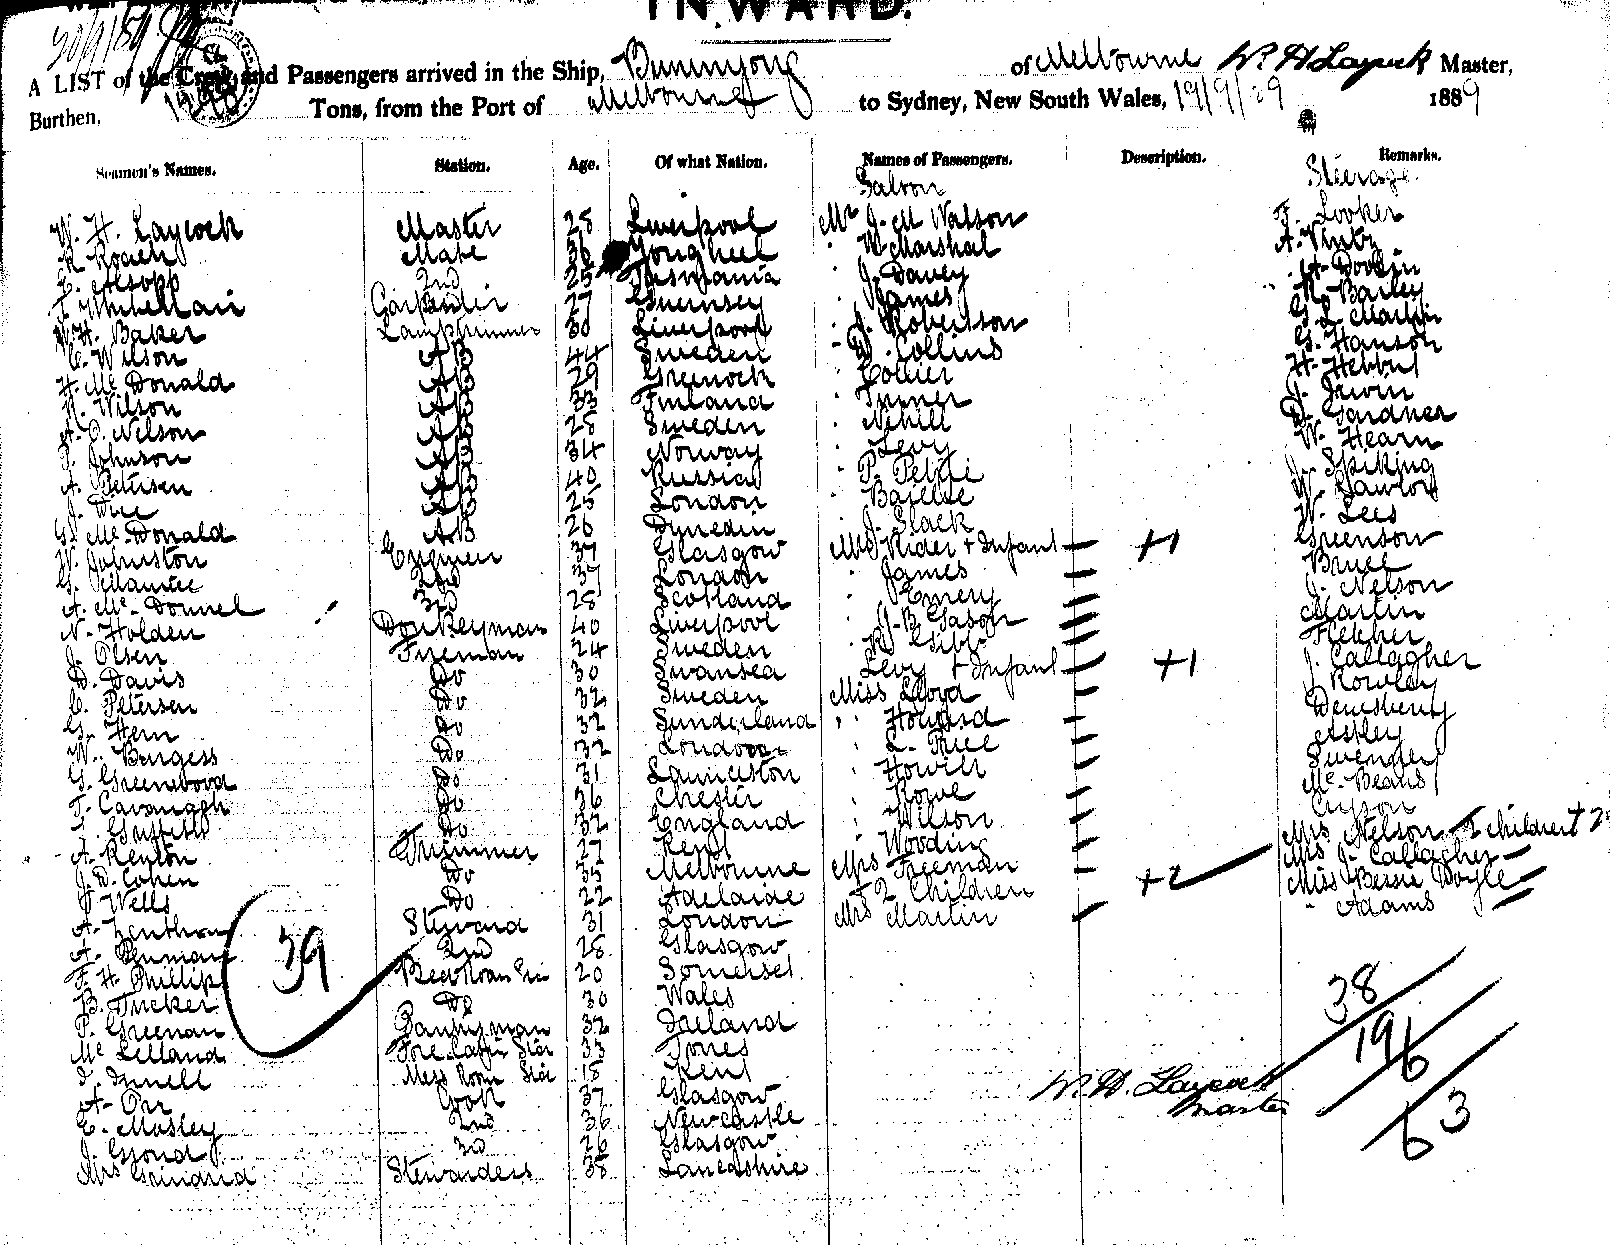 INWARD.
A LIST of the Crew and Passengers arrived in the Ship, Buninyong of Melbourne W. H. Laycock Master,
Burthen, Tons, from the Port of Melbourne to Sydney, New South Wales, 19/9/89 1889
Seamen's Names. Station. Age. Of what Nation. Names of Passengers. Description. Remarks.
Saloon Steerage
W. H. Laycock Master 28 Liverpool Mr J. M Watson F. Looker
R. Roach Mate 36 Youghal W Marshal A.
C. Alsopp 2nd 25 Tasmania J. Davey A. Dobbin
27 Guernsey James R. Bailey
W. H. Baker Lamptrimmer 30 Liverpool J. Robertson G. L. Martin
C. Wilson AB 44 Sweden D. Collins G. Hanson
H. Mc Donald AB 29 Greenock Collier H.
K. Wilson AB 33 Finland Turner J. Irwin
A. C. Nelson AB 28 Sweden Nehill D. Gardner
J. Johnson AB 34 Norway Levy W. Hearn
A. Petersen AB 40 Russia P. Pettie J. Spiking
J. AB 25 London Baillie W. Lawlor
G. Mc Donald AB 26 Dunedin J. Slack W. Lees
W. Johnston Engineer 37 Glasgow Mrs Rider + Infant +1 Greenson
G. 2nd 37 London James Bruce
A. Mc Donnel 3rd 28 Scotland Emery J. Nelson
N. Holden Donkeyman 40 Liverpool J. B. Gason Martin
J. Olsen Fireman 24 Sweden R. Gibb Fletcher
D. Davis Do 30 Swansea Levy + Infant +1 J. Callagher
C. Petersen Do 32 Sweden Miss Lloyd J. Rowley
G. Hern Do 32 Sunderland " Howard
W. Burgess Do 32 London L. Price Astley
G. Greenwood Do 31 Launceston Howitt
T. Cavanagh Do 36 Chester Rowe Mc Beans
J. Griffiths Do 32 England Wilson
A. Renton Trimmer 27 Kent Wooding Mrs Nelson + 2 children +2
J. D. Cohen Do 35 Melbourne Mrs Freeman Mrs J. Callagher
J. Wells Do 22 Adelaide + 2 Children +2 Miss Bessie Doyle
A. Steward 31 London Mrs Martin " Adams
A. 2nd 28 Glasgow
F. H. Phillips 20 Somerset
B. Tucker Do 30 Wales
P. Greenan Pantryman 32 Ireland
Mc Lelland Fore Cabin 33
J. Mess Room 18 Kent
A. Orr Cook 37 Glasgow
C. Mosley 2nd 36 Newcastle
J. 3rd 26 Glasgow
Mrs Stewardess 38 Lancashire
39
38
196
63
W. H. Laycock
Master